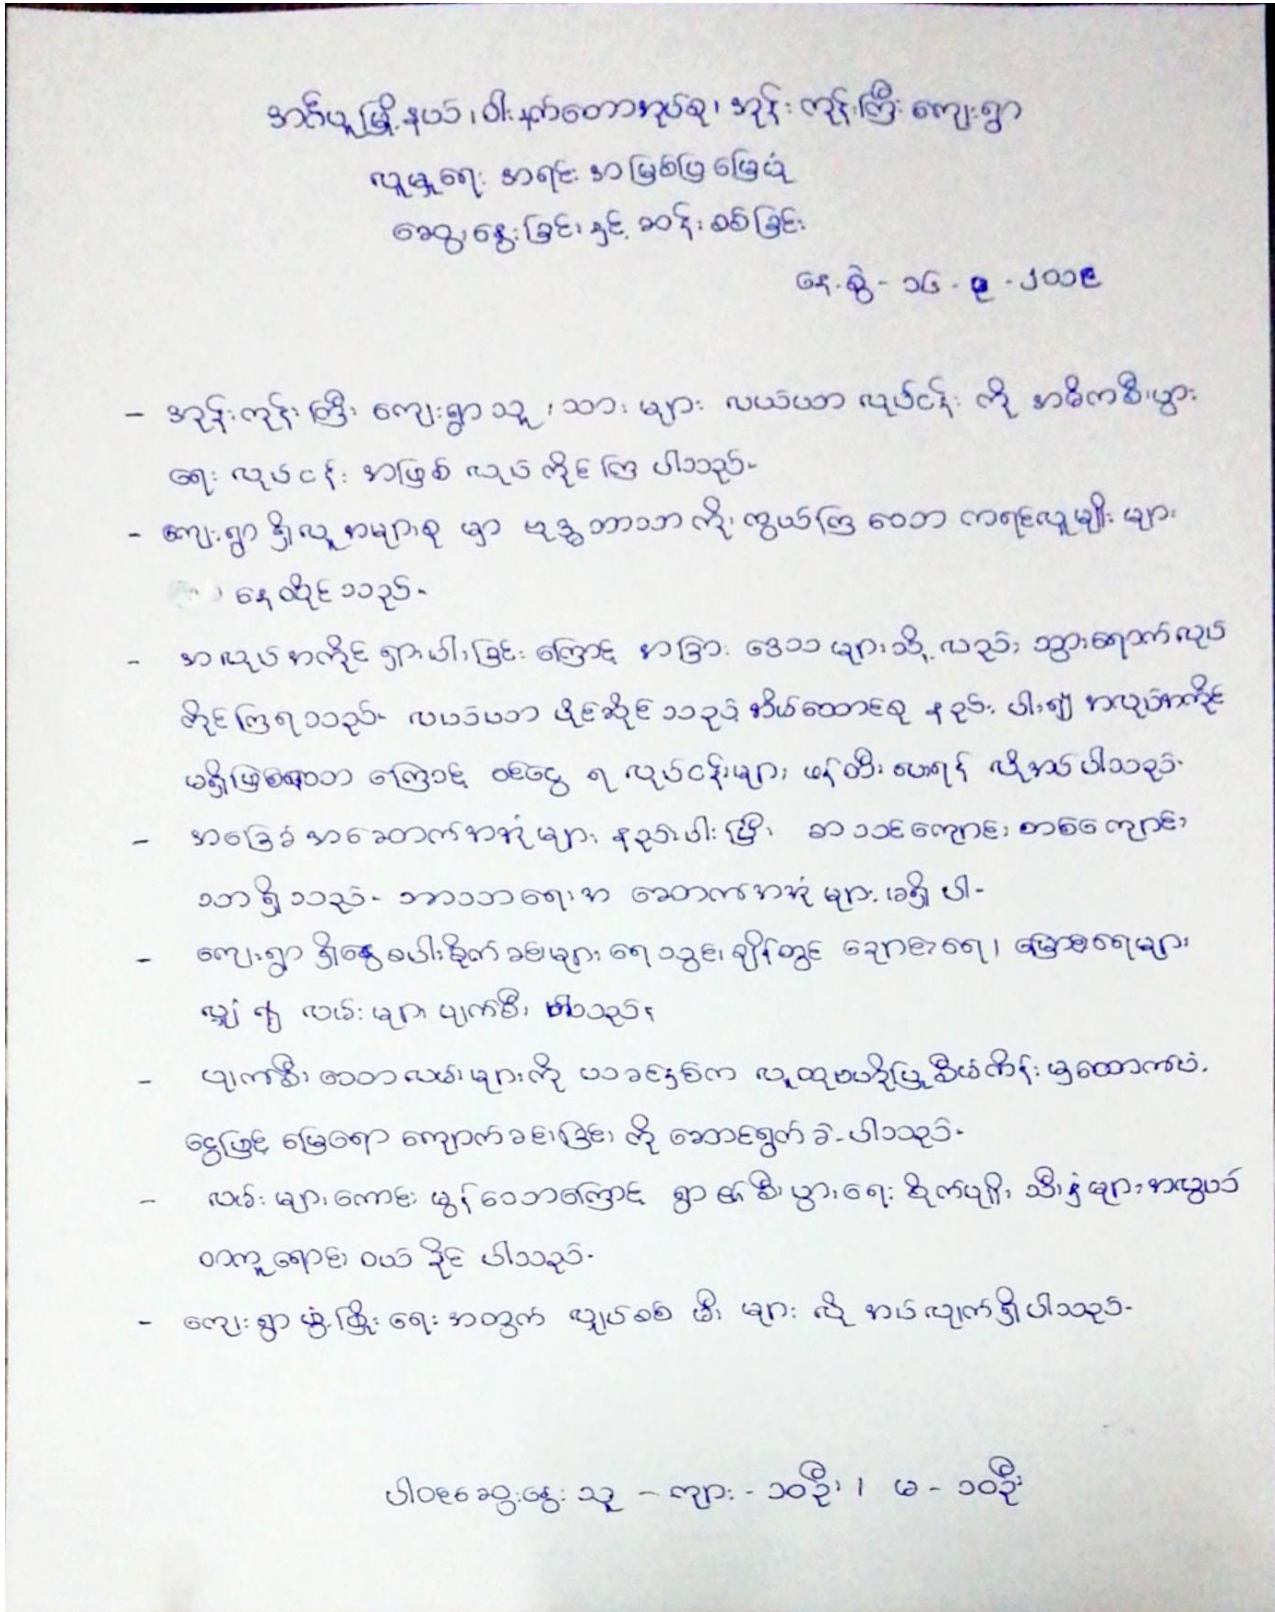 အင်္ဂပူမြို့နယ်၊ ဝါးနက်တောအုပ်စု၊ အုန်းကုန်းကြီးကျေးရွာ
လူမှုရေး အရင်းအမြစ်ပြမြေပုံ
ဆွေးနွေးခြင်းနှင့် ဆန်းစစ်ခြင်း
နေ့စွဲ - ၁၆ - ၉ - ၂၀၁၉
- အုန်းကုန်းကြီး ကျေးရွာသူ၊ သားများ လယ်ယာလုပ်ငန်းကို အဓိကစီးပွား
ရေးလုပ်ငန်းအဖြစ် လုပ်ကိုင်ကြပါသည်။
- ကျေးရွာရှိလူအများစုမှာ ဗုဒ္ဓဘာသာကိုးကွယ်ကြသော ကရင်လူမျိုးများ
နေထိုင်သည်။
- အလုပ်အကိုင်ရှားပါးခြင်းကြောင့် အခြားဒေသများသို့လည်း သွားရောက်လုပ်
ကိုင်ကြရသည်။ လယ်ယာပိုင်ဆိုင်သည့်အိမ်ထောင်စု နည်းပါး၍ အလုပ်အကိုင်
မရှိဖြစ်ရသောကြောင့် ဝင်ငွေရလုပ်ငန်းများ ဖန်တီးပေးရန် လိုအပ်ပါသည်။
- အခြေခံအဆောက်အအုံများ နည်းပါးပြီး စာသင်ကျောင်း တစ်ကျောင်း
သာရှိသည်။ ဘာသာရေးအဆောက်အအုံများ မရှိပါ။
- ကျေးရွာရှိနွေစပါးစိုက်ခင်းများ ရေသွင်းချိန်တွင် ချောင်းရေ၊ မြောင်းရေများ
လျှံ၍ လမ်းများပျက်စီးပါသည်။
- ပျက်စီးသောလမ်းများကို ယခင်နှစ်က လူထုဗဟိုပြုစီမံကိန်းမှထောက်ပံ့
ငွေဖြင့် မြေရောကျောက်ခင်းခြင်းကို ဆောင်ရွက်ခဲ့ပါသည်။
- လမ်းများကောင်းမွန်သောကြောင့် ရွာ၏စီးပွားရေး စိုက်ပျိုးသီးနှံများအလွယ်
တကူရောင်းဝယ်နိုင်ပါသည်။
- ကျေးရွာဖွံ့ဖြိုးရေးအတွက် လျှပ်စစ်မီးများ လိုအပ်လျက်ရှိပါသည်။
ပါဝင်ဆွေးနွေးသူ - ကျား - ၁၀ဦး၊ မ - ၁၀ဦး